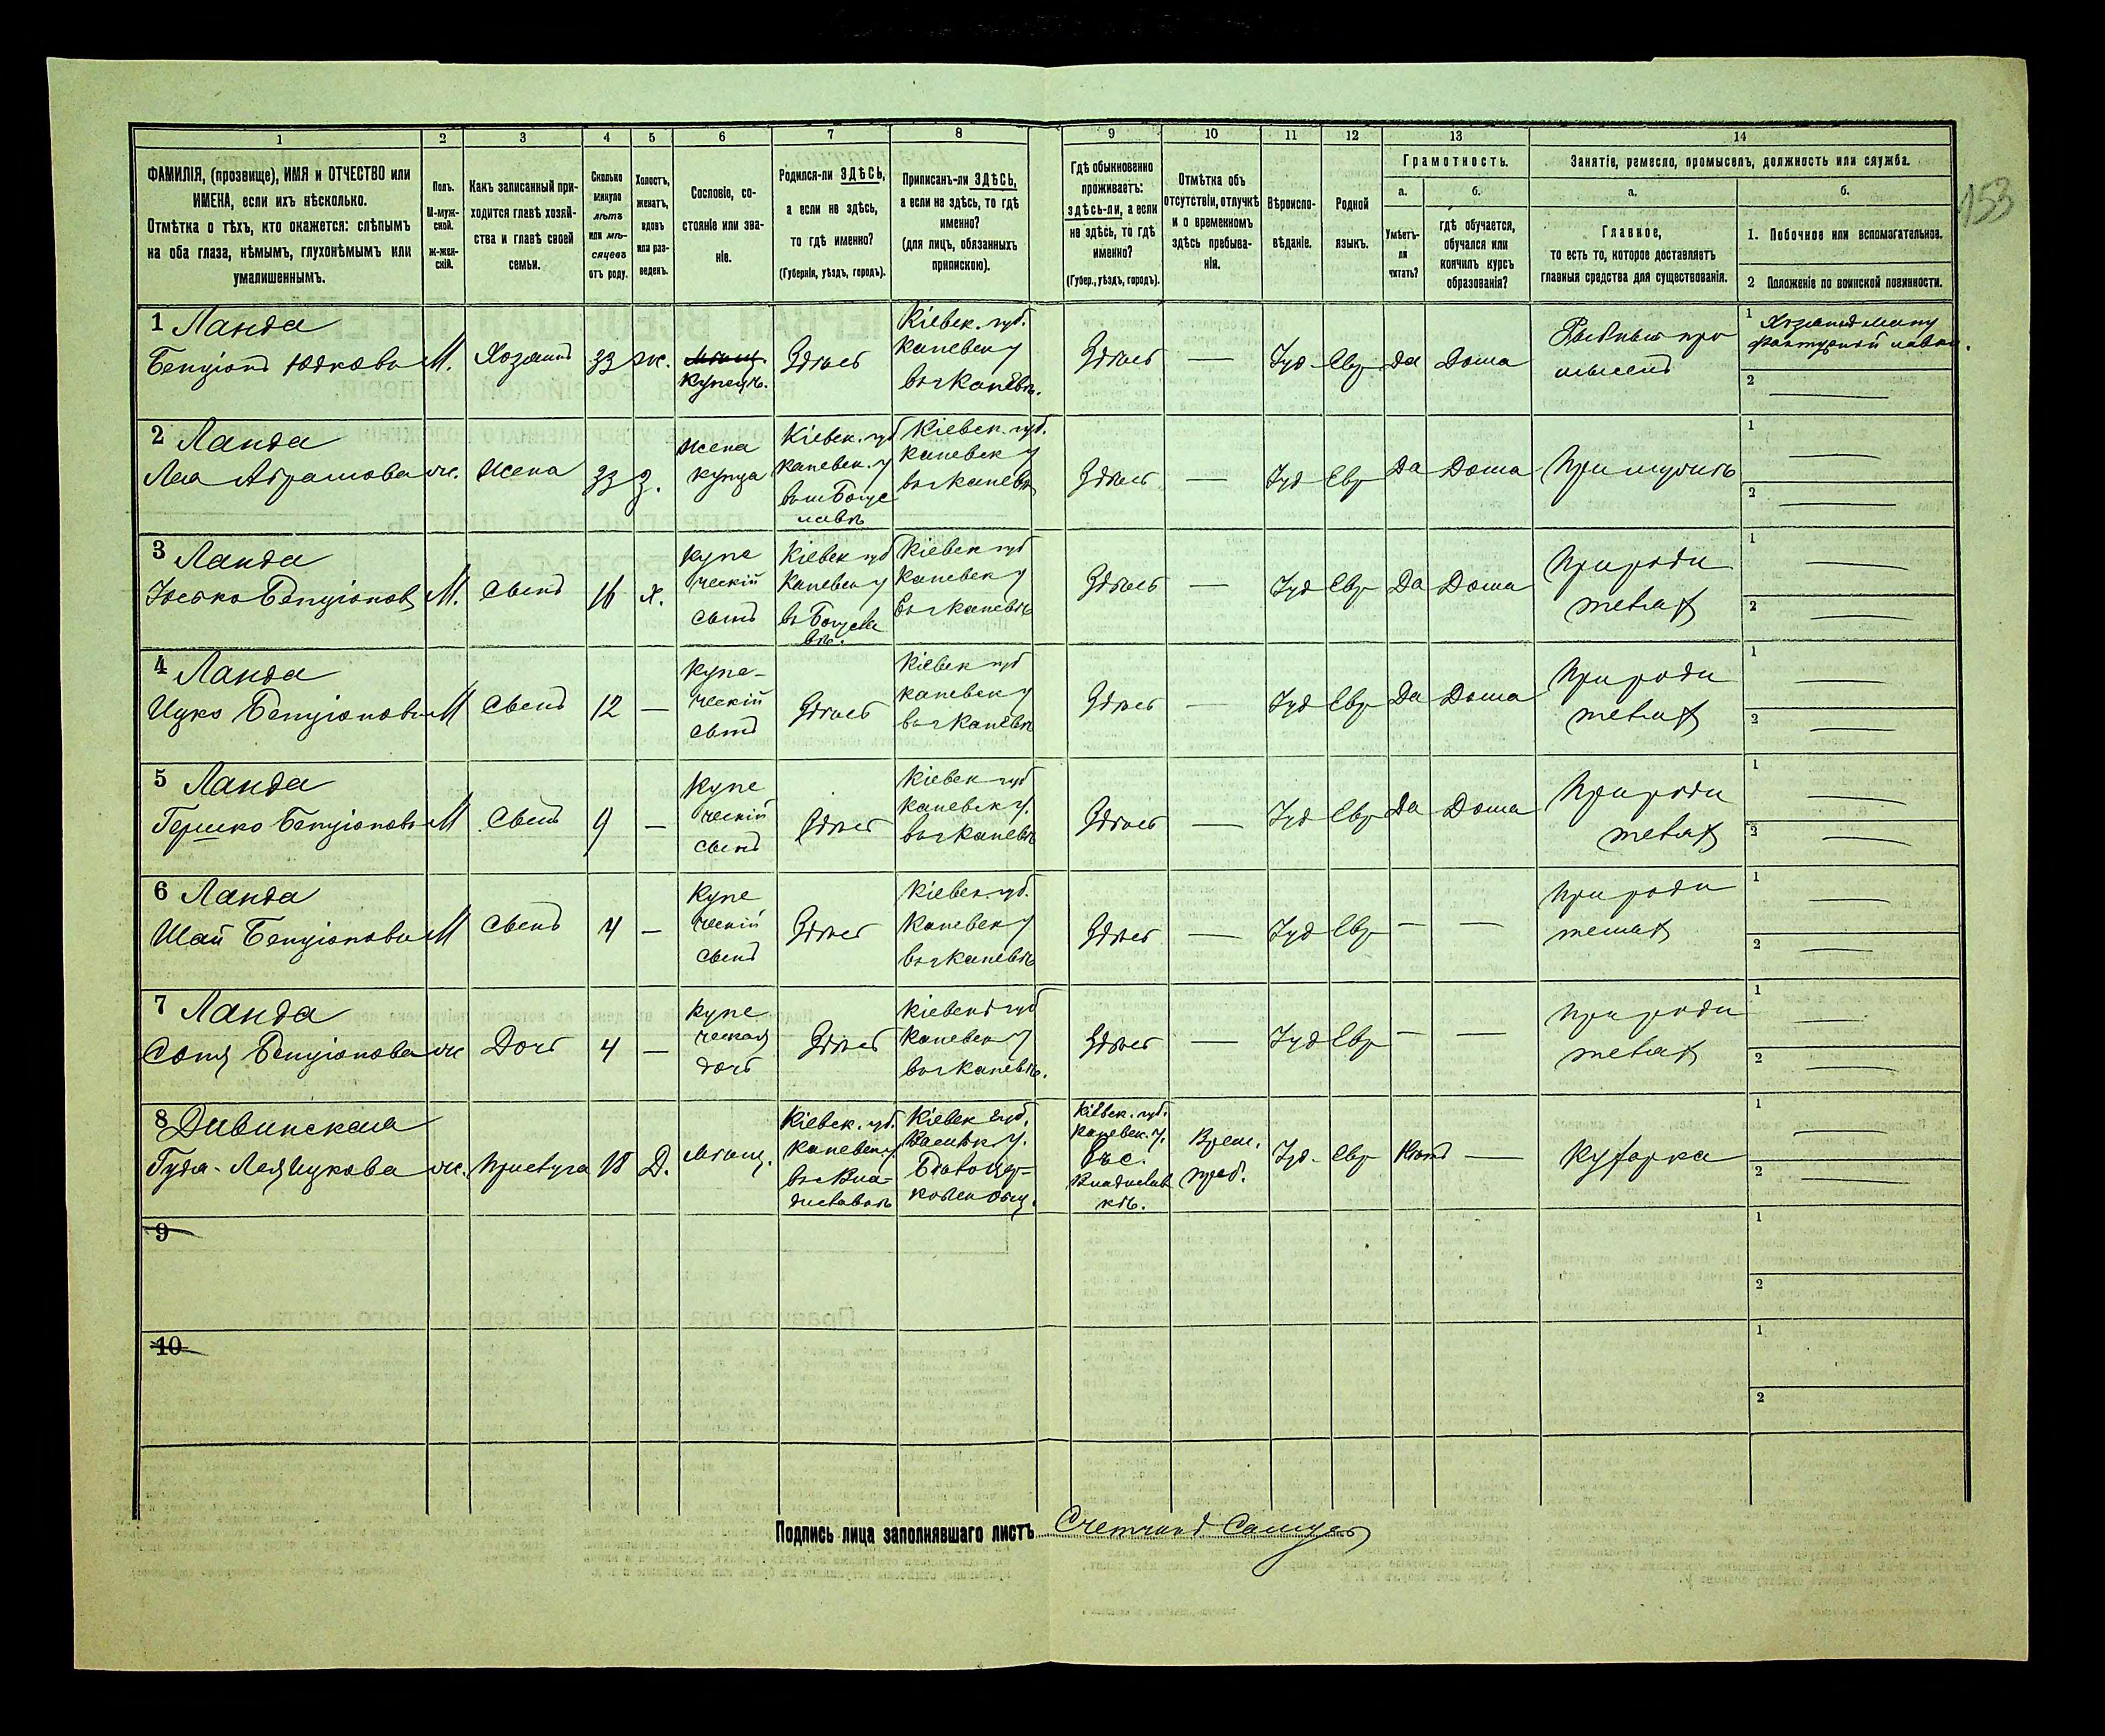 153
1 2 3 4 5 6 7 8 9 10 11 12 13 14
ФАМИЛІЯ, (прозвище), ИМЯ и ОТЧЕСТВО или
ИМЕНА, если ихъ нѣсколько.
Отмѣтка о тѣхъ, кто окажется: слѣпымъ
на оба глаза, нѣмымъ, глухонѣмымъ или
умалишеннымъ.
Полъ.
М-муж-
ской.
ж-жен-
скій.
Какъ записанный при-
ходится главѣ хозяй-
ства и главѣ своей
семьи.
Сколько
минуло
лѣтъ
или мѣ-
сяцевъ
отъ роду.
Холостъ,
женатъ,
вдовъ
или раз-
веденъ.
Сословіе, со-
стояніе или зва-
ніе.
Родился-ли ЗДѢСЬ,
а если не здѣсь,
то гдѣ именно?
(Губернія, уѣздъ, городъ).
Приписанъ-ли ЗДѢСЬ,
а если не здѣсь, то гдѣ
именно?
(для лицъ, обязанныхъ
припискою).
Гдѣ обыкновенно
проживаетъ:
здѣсь-ли, а если
не здѣсь, то гдѣ
именно?
(Губер., уѣздъ, городъ).
Отмѣтка объ
отсутствіи, отлучкѣ
и о временномъ
здѣсь пребыва-
ніи.
Вѣроиспо-
вѣданіе.
Родной
языкъ.
Грамотность.
а.
Умѣетъ-
ли
читать?
б.
гдѣ обучается,
обучался или
кончилъ курсъ
образованія?
Занятіе, ремесло, промыселъ, должность или служба.
а.
Главное,
то есть то, которое доставляетъ
главныя средства для существованія.
б.
1. Побочное или вспомогательное.
2 Положеніе по воинской повинности.
1 Ланда
Бенціонъ Юдковъ
М.
Хозяинъ
33
ж.
купецъ.
Здѣсь
Кіевск. губ.
Каневск у
въ г Каневѣ.
Здѣсь
—
Іуд
Евр
Да
Дома
1
2 —
2 Ланда
Леа Абрамова
ж.
Жена
33
З.
Жена
купца
Кіевск. губ
Каневск. у
въ м Богус
лавѣ
Кіевск. губ.
Каневск у
въ г Каневѣ
Здѣсь
—
Іуд
Евр
Да
Дома
При мужѣ
1 —
2 —
3 Ланда
Іосько Бенціоновъ
М.
Сынъ
16
Х.
Купе
ческій
сынъ
Кіевск губ
Каневск у
въ Богусла
вѣ.
Кіевск губ
Каневск у
въ г Каневѣ
Здѣсь
—
Іуд
Евр
Да
Дома
При роди
теляхъ
1 —
2 —
4 Ланда
Ицко Бенціоновъ
М
Сынъ
12
—
Купе-
ческій
сынъ
Здѣсь
Кіевск губ
Каневск у
въ г Каневѣ
Здѣсь
—
Іуд
Евр
Да
Дома
При роди
теляхъ
1 —
2 —
5 Ланда
Гершко Бенціоновъ
М
Сынъ
9
—
Купе
ческій
сынъ
Здѣсь
Кіевск губ
Каневск у.
въ г Каневѣ
Здѣсь
—
Іуд
Евр
Да
Дома
При роди
теляхъ
1 —
2 —
6 Ланда
Шай Бенціоновъ
М
Сынъ
4
—
Купе
ческій
сынъ
Здѣсь
Кіевск губ.
Каневск у
въ г Каневѣ
Здѣсь
—
Іуд
Евр
—
—
При роди
теляхъ
1 —
2 —
7 Ланда
Соня Бенціонова
ж
Дочь
4
—
Купе
ческая
дочь
Здѣсь
Кіевск губ
Каневск у
въ г Каневѣ.
Здѣсь
—
Іуд
Евр
—
—
При роди
теляхъ
1 —
2 —
8 Дивинская
Ицкова
ж.
Прислуга
18
Д.
Мѣщ.
Кіевск. губ.
Каневск у
Кіевск губ.
Васильк у.
Бѣлоцер-
ковск общ.
Кіевск. губ.
Каневск. у.
въ с.
Врем.
преб.
Іуд.
Евр
Нѣтъ
—
Кухарка
1 —
2 —
9
1
2
10
1
2
Подпись лица заполнявшаго листъ Счетчикъ